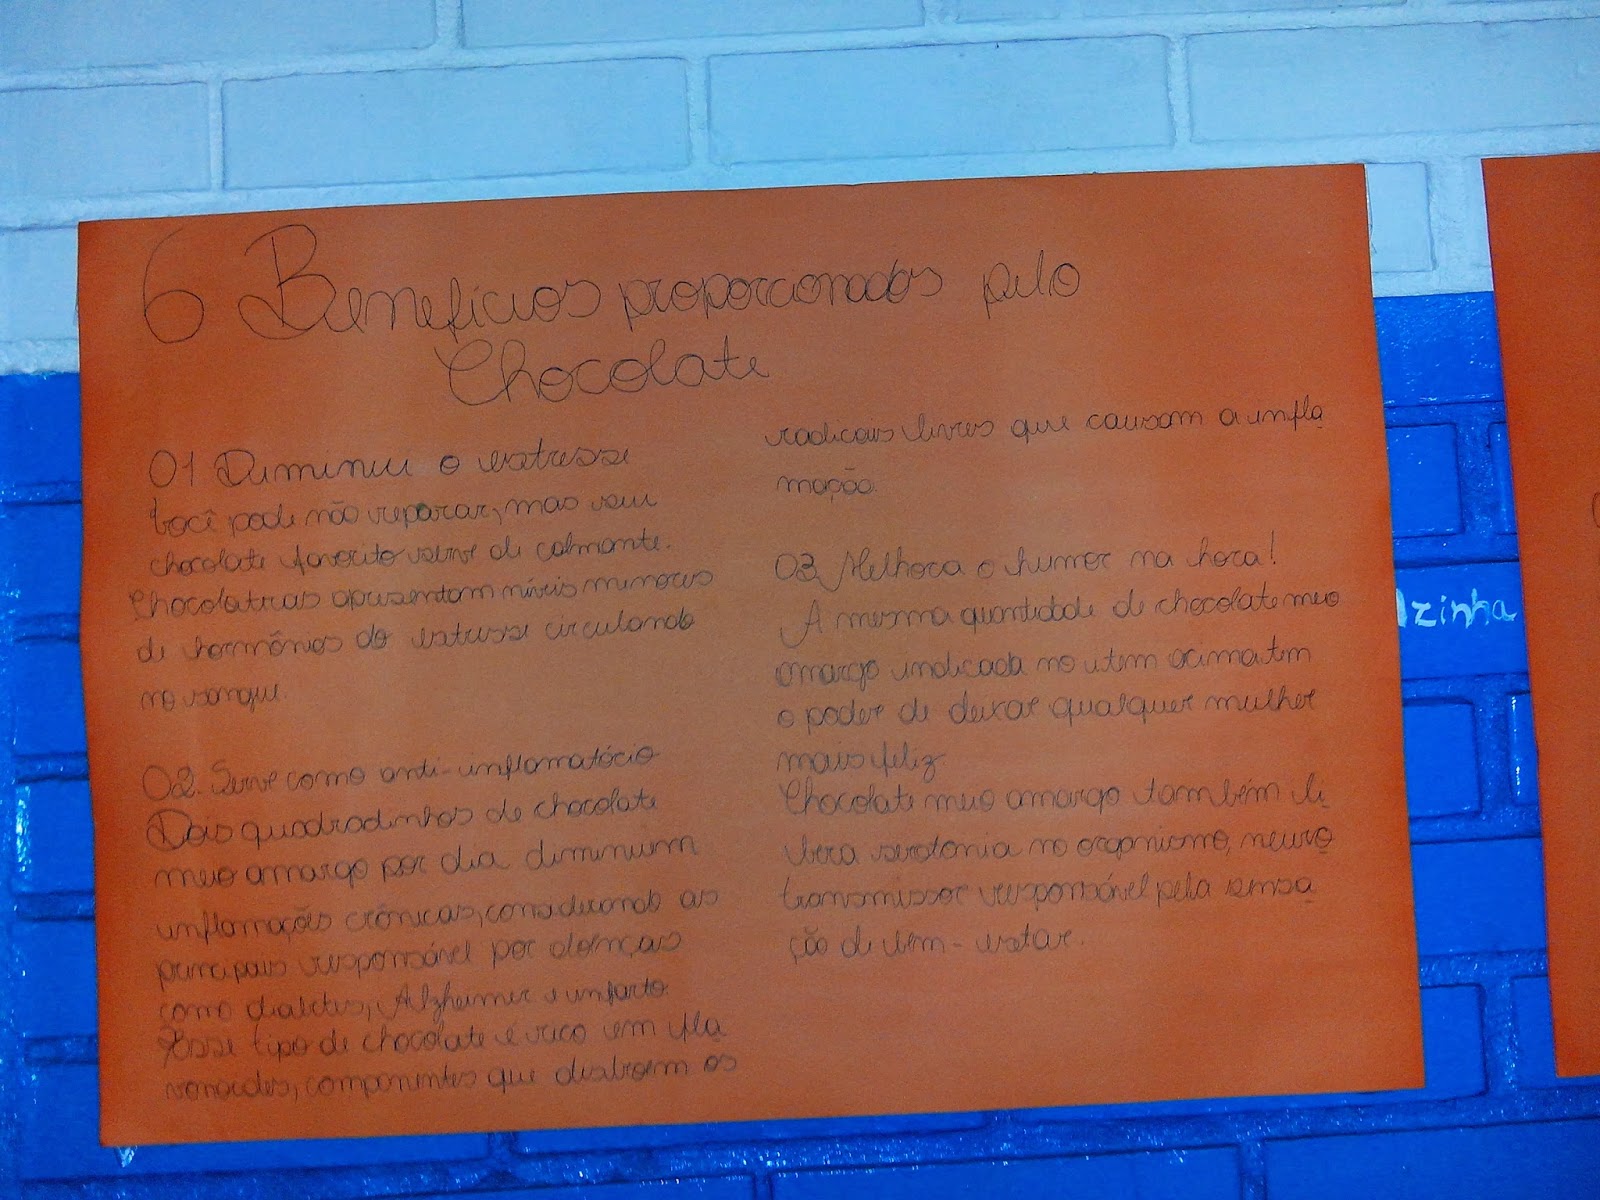 6 Benefícios proporcionados pelo
Chocolate
01 Diminui o estresse
Você pode não reparar, mas seu
chocolate favorito serve de calmante.
Chocolatras apresentam níveis menores
de hormônios do estresse circulando
no sangue.
02. Serve como anti-inflamatório
Dois quadradinhos de chocolate
meio amargo por dia diminuem
inflamações crônicas, considerando as
principais responsável por doenças
como diabetes, Alzheimer e infarto.
Esse tipo de chocolate é rico em fla
vonoides, componentes que destroem os
radicais livres que causam a infla
mação.
03. Melhora o humor na hora!
A mesma quantidade de chocolate meio
amargo indicada no item acima tem
o poder de deixar qualquer mulher
mais feliz
Chocolate meio amargo também li
bera serotonia no organismo, neuro
transmissor responsável pela sensa
ção de bem-estar.
zinha